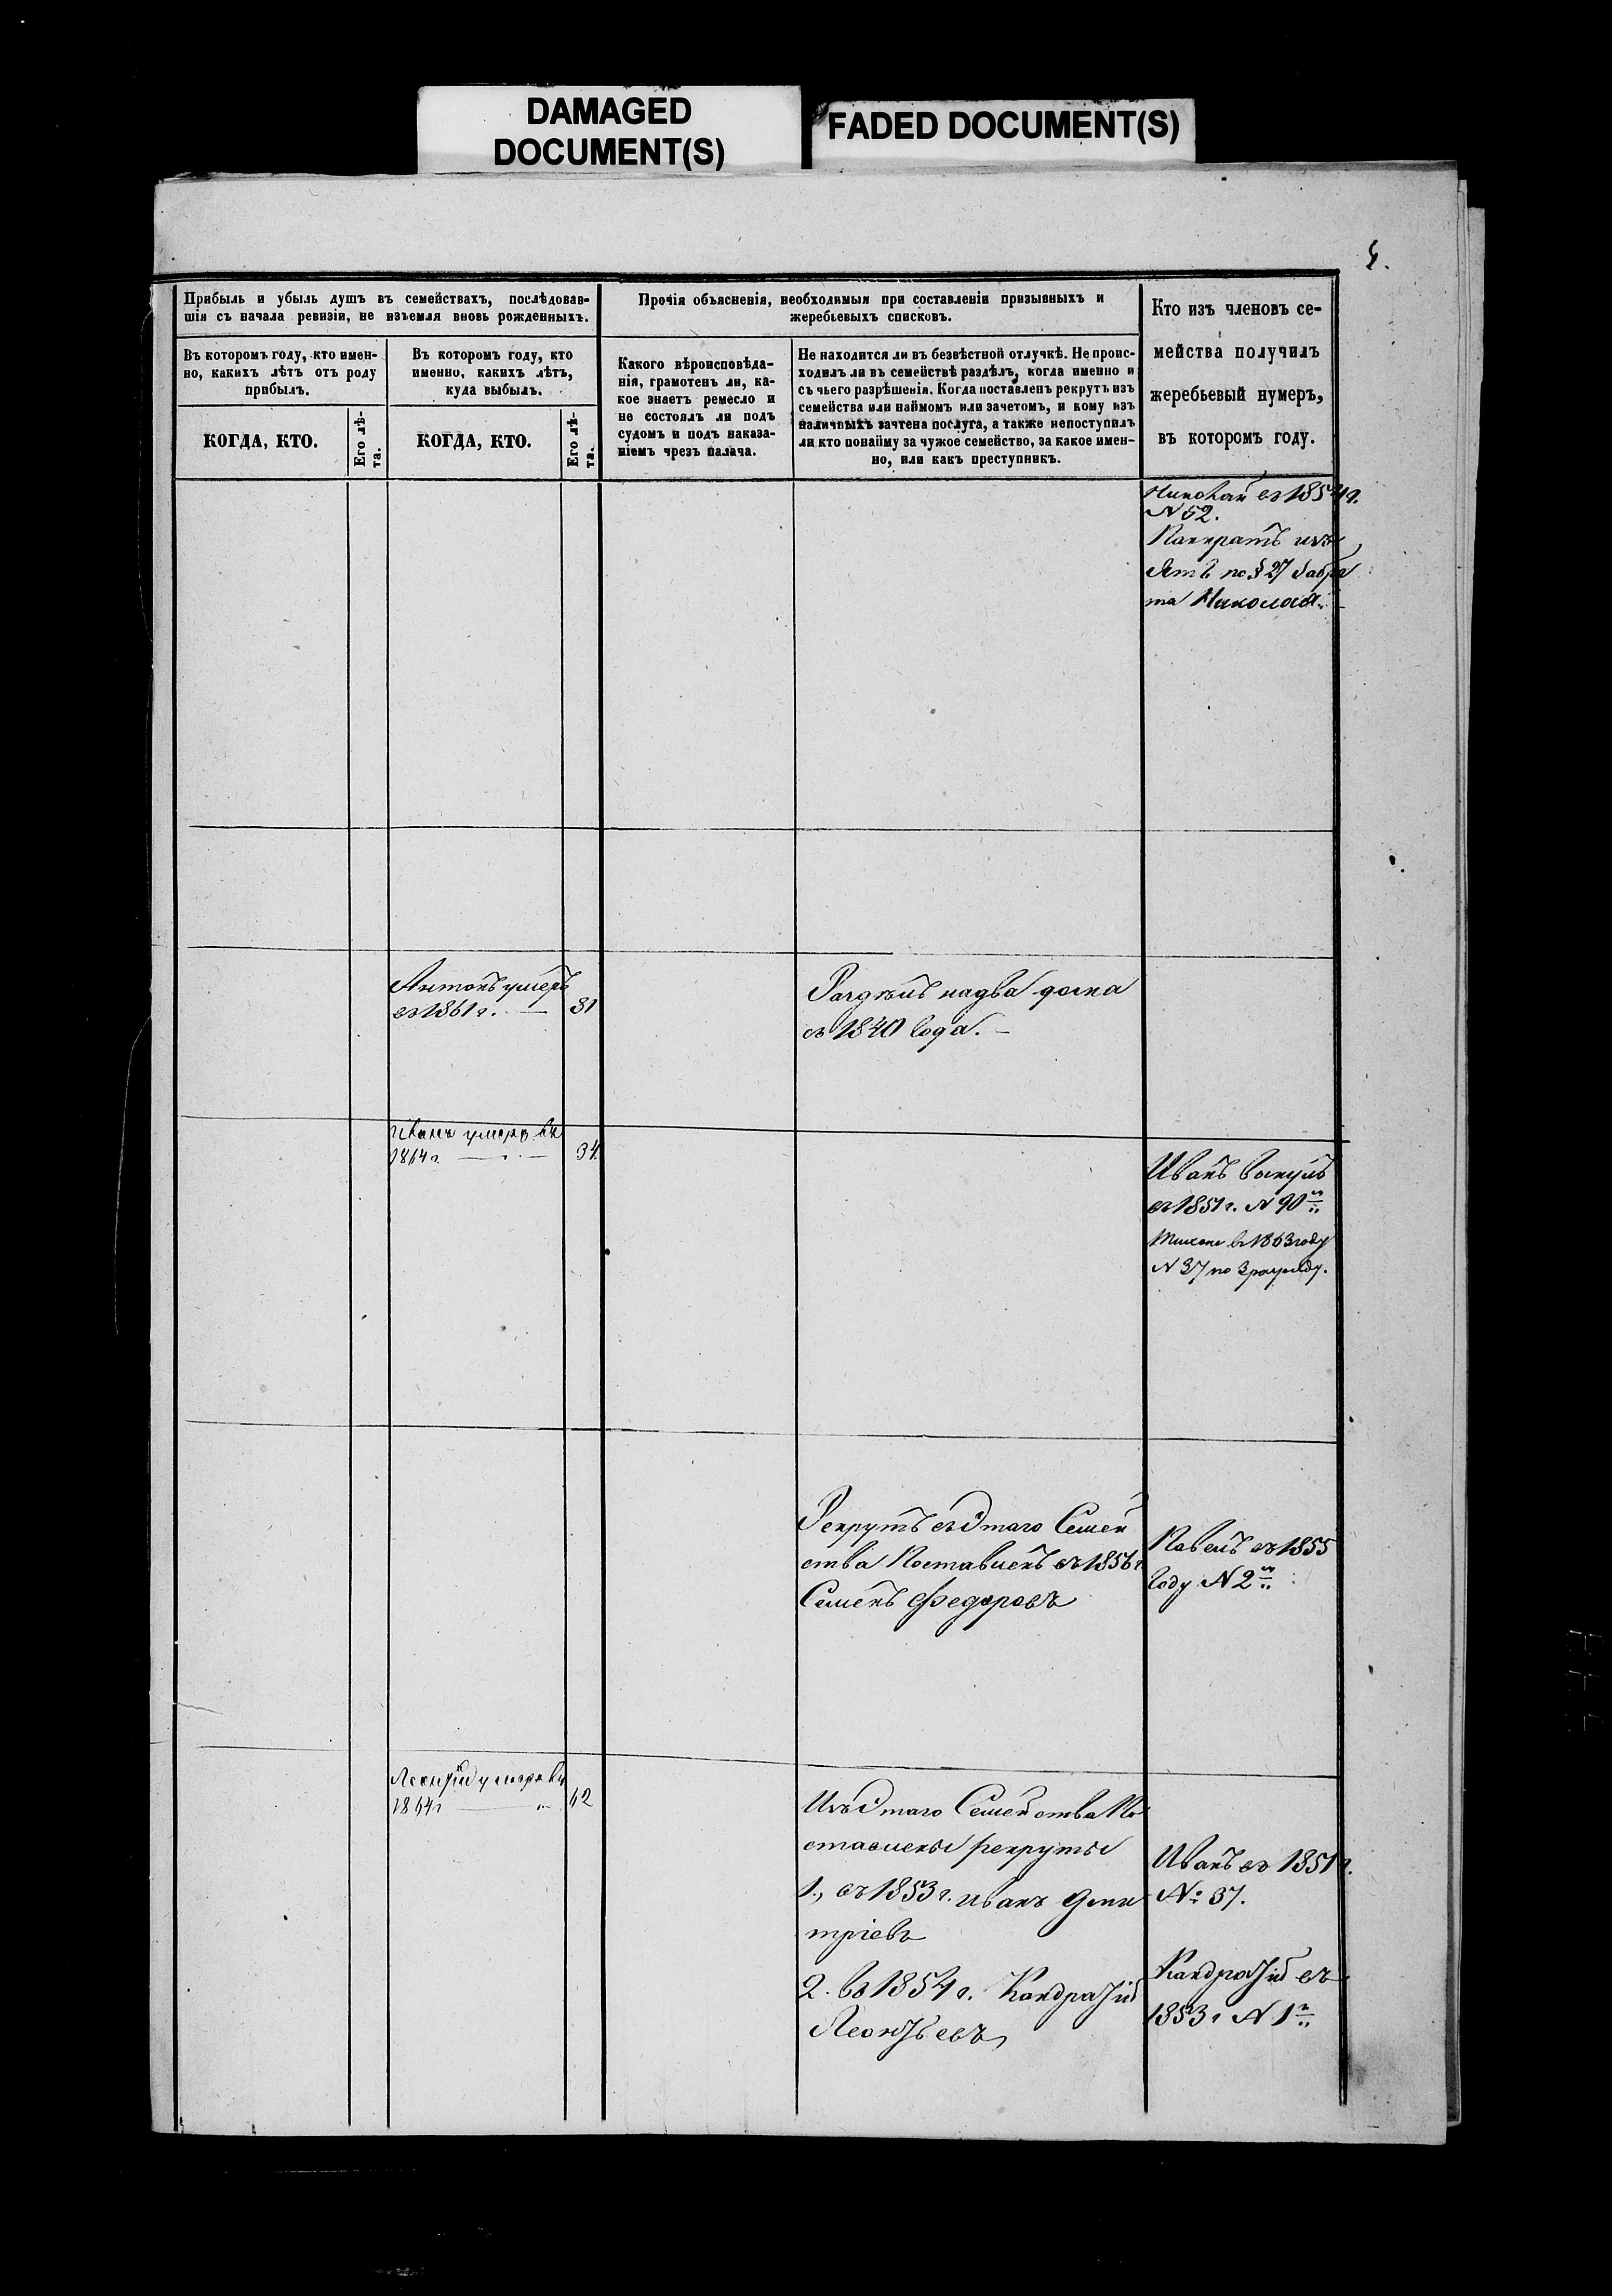 DAMAGED
DOCUMENT(S)
FADED DOCUMENT(S)
Прибыль и убыль душъ въ семействахъ, послѣдовав-
шія съ начала ревизіи, не изъемля вновь рожденныхъ.
Прочія объясненія, необходимыя при составленіи призывныхъ и
жеребьевыхъ списковъ.
Кто изъ членовъ се-
мейства получилъ
жеребьевый нумеръ,
въ которомъ году.
Въ которомъ году, кто имен-
но, какихъ лѣтъ отъ роду
прибылъ.
Въ которомъ году, кто
именно, какихъ лѣтъ,
куда выбылъ.
Какого вѣроисповѣда-
нія, грамотенъ ли, ка-
кое знаетъ ремесло и
не состоялъ ли подъ
судомъ и подъ наказа-
ніемъ чрезъ палача.
Не находится ли въ безвѣстной отлучкѣ. Не проис-
ходилъ ли въ семействѣ раздѣлъ, когда именно и
съ чьего разрѣшенія. Когда поставленъ рекрутъ изъ
семейства или наймомъ или зачетомъ, и кому изъ
наличныхъ зачтена послуга, а также непоступилъ
ли кто понайму за чужое семейство, за какое имен-
но, или какъ преступникъ.
КОГДА, КТО.
Его лѣ-
та.
КОГДА, КТО.
Его лѣ-
та.
Николай въ 1854 г.
N 52.
Панкратъ изъ
ятъ по § 27 забра
та Николая.
Антонъ умеръ
въ 1861 г. — 31
Раздѣлъ надва дома
въ 1840 года. –
Иванъ умеръ въ
1864 г. — 34.
Иванъ вынулъ
въ 1851 г. N 90й
въ 1863 году
N 37 по 3 разряду.
Рекрутъ съэтаго Семей
ства Поставленъ въ 1856 г
Семенъ Федоровъ
Павелъ въ 1855
году N 2й
Леонтій умеръ въ
1864 г — 62
Изъэтаго Семейства По
ставлены рекруты
1., въ 1853 г. Иванъ Дми
тріевъ
2. въ 1854 г. Кондратій
Леонтьевъ
Иванъ въ 1851 г.
№ 37.
Кондратій въ
1853 г N 1й